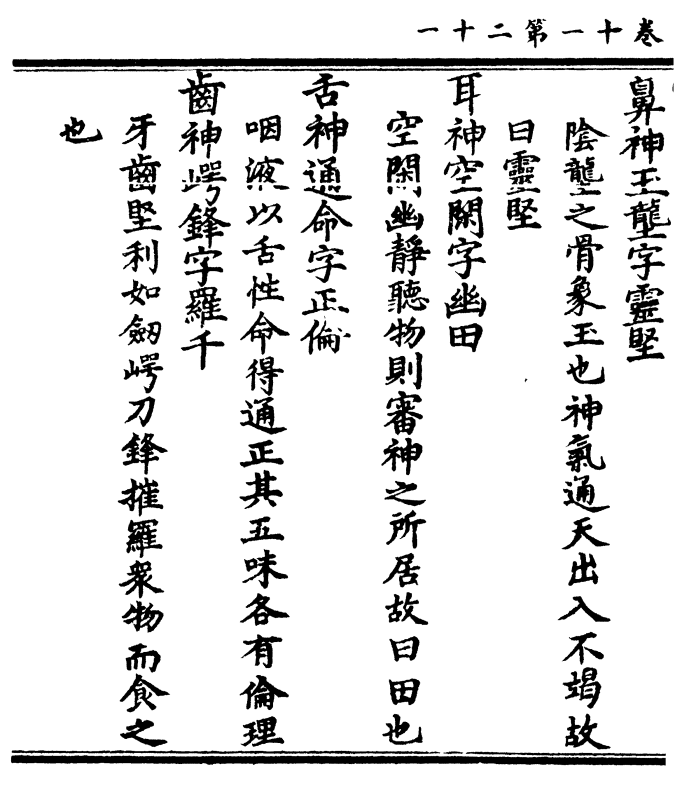 卷十一第二十一
鼻神玉壟字靈堅
陰壟之骨象玉也神氣通天出入不竭故
曰靈堅
耳神空閑字幽田
空閑幽靜聽物則審神之所居故曰田也
舌神通命字正倫
咽液以舌性命得通正其五味各有倫理
齒神崿鋒字羅千
牙齒堅利如劔崿刀鋒摧羅衆物而食之
也